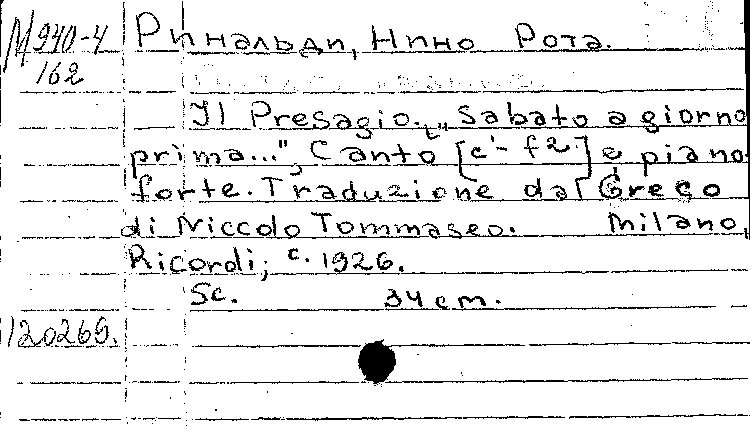 М 940-4
162
Ринальди, Нино Рота.
Il Presagio. „Sabato a giorno
prima...", Canto [c'- f2] e piano-
forte. Traduzione dal Greco
di Niccolo Tommaseo. Milano,
Ricordi, c. 1926.
Sc. 34 cm.
120269.